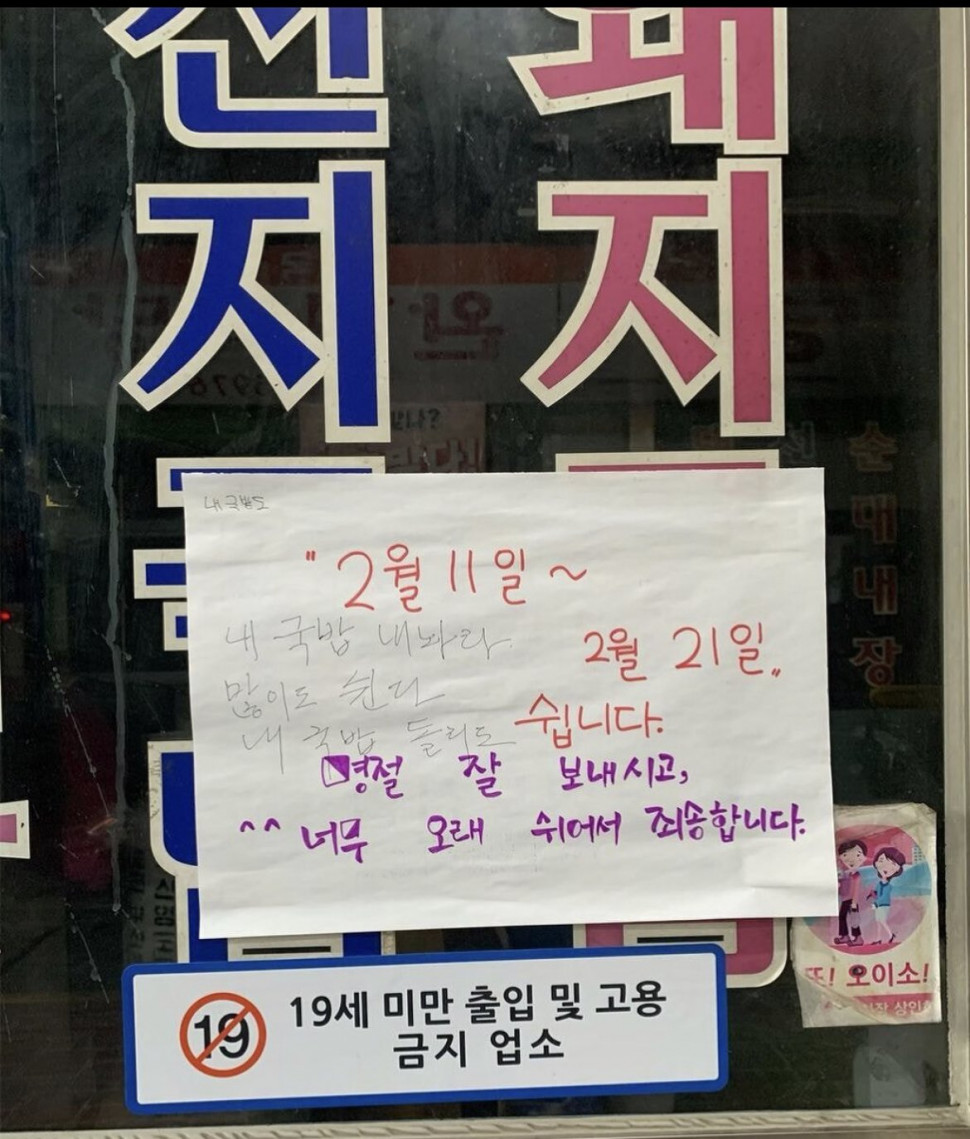 선 돼
지 지
내국밥도
" 2월 11일 ~
2월 21일 "
쉽니다.
내 국밥 내놔라
많이도 쉰다
내 국밥 돌리도
명절 잘 보내시고,
^^ 너무 오래 쉬어서 죄송합니다.
순대내장
또! 오이소!
19
19세 미만 출입 및 고용
금지 업소